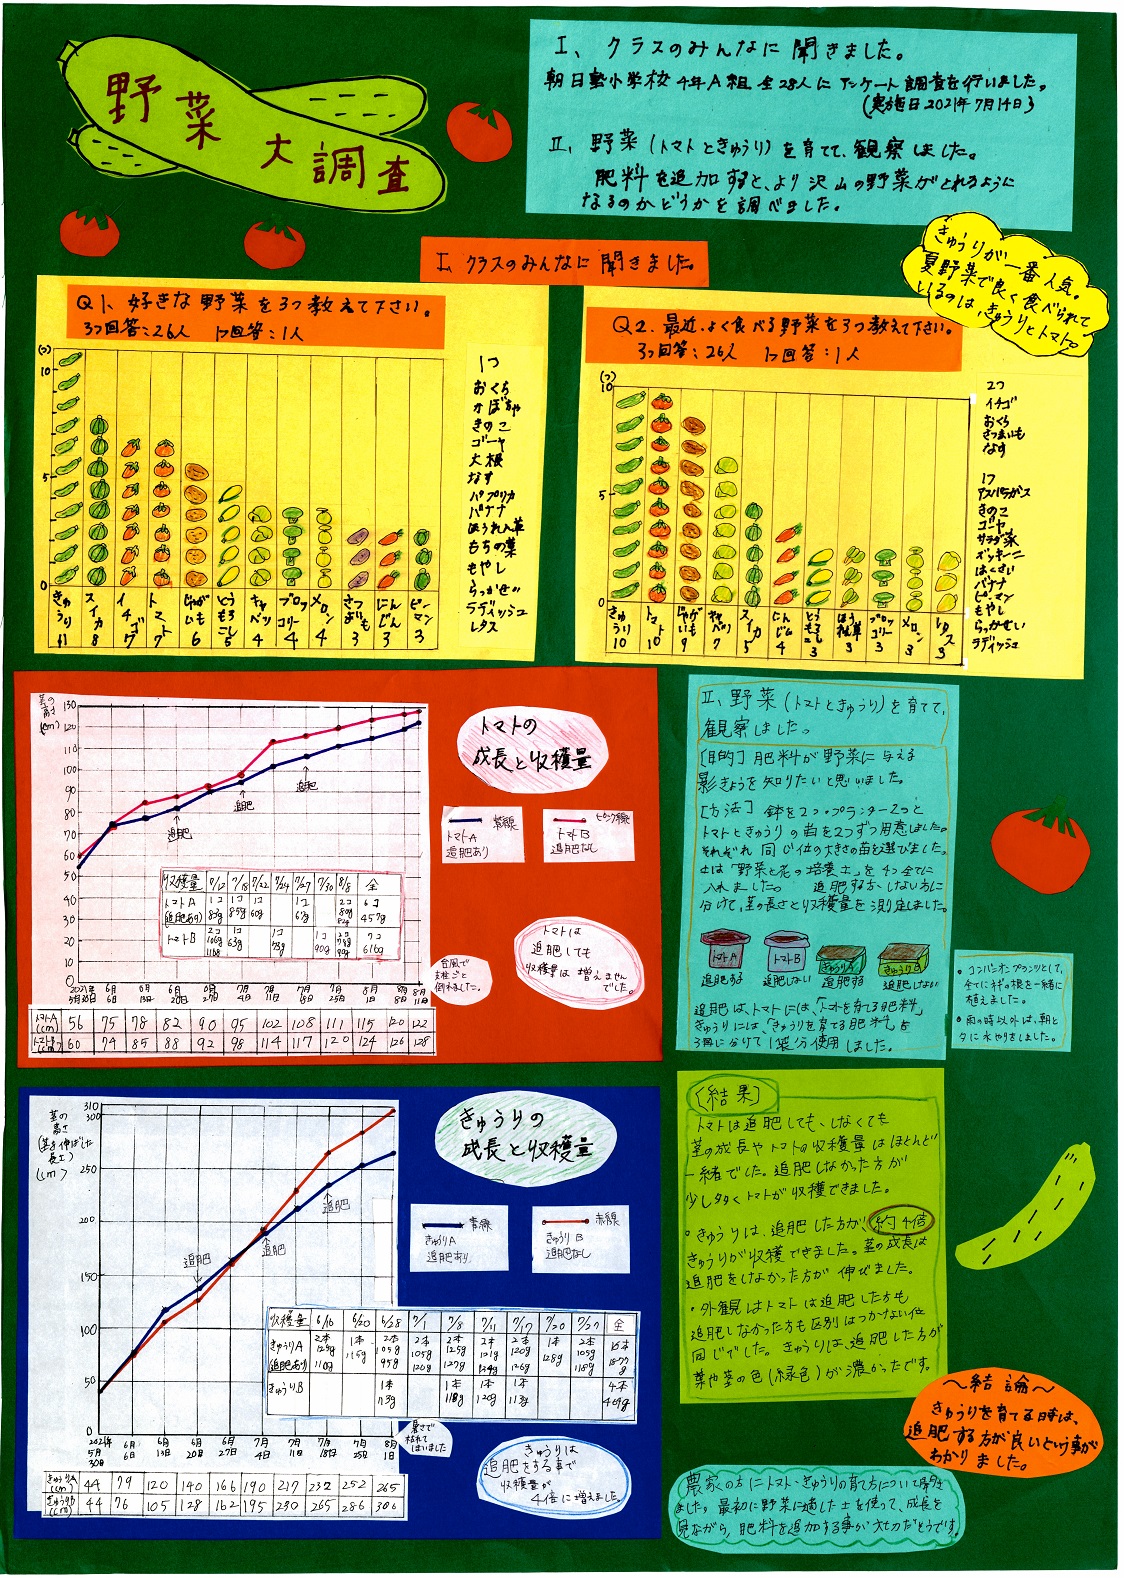 野菜大調査
I、クラスのみんなに聞きました。
朝日塾小学校4年A組全28人にアンケート調査を行いました。
(実施日2021年7月14日)
II、野菜(トマトときゅうり)を育てて、観察しました。
肥料を追加すると、より沢山の野菜がとれるように
なるのかどうかを調べました。
きゅうりが一番人気。
夏野菜で良く食べられて
いるのは、きゅうりとトマト。
I、クラスのみんなに聞きました。
Q1、好きな野菜を3つ教えて下さい。
3つ回答:26人 1つ回答:1人
(つ)
10
5
0
きゅうり 11
スイカ 8
イチゴ 7
トマト 7
じゃがいも 6
とうもろこし 5
キャベツ 4
ブロッコリー 4
メロン 4
さつまいも 3
にんじん 3
ピーマン 3
1つ
おくら
かぼちゃ
きのこ
ゴーヤ
大根
なす
パプリカ
バナナ
ほうれん草
もちの葉
もやし
らっかせい
ラディッシュ
レタス
Q2、最近、よく食べる野菜を3つ教えて下さい。
3つ回答:26人 1つ回答:1人
(つ)
10
5
0
きゅうり 10
トマト 10
じゃがいも 9
キャベツ 7
スイカ 5
にんじん 4
とうもろこし 3
ほうれん草 3
ブロッコリー 3
メロン 3
レタス 3
2つ
イチゴ
おくら
さつまいも
なす
1つ
アスパラガス
きのこ
ゴーヤ
サラダ菜
ズッキーニ
はくさい
バナナ
ピーマン
もやし
らっかせい
ラディッシュ
トマトの
成長と収穫量
青線
トマトA
追肥あり
ピンク線
トマトB
追肥なし
茎の
高さ
(cm)
130
120
110
100
90
80
70
60
50
40
30
20
10
0
追肥
追肥
追肥
収穫量 7/12 7/18 7/22 7/24 7/27 7/30 8/8 全
トマトA 1コ 1コ 1コ 1コ 2コ 6コ
(追肥あり) 83g 85g 60g 67g 80g 82g 457g
トマトB 2コ 1コ 1コ 1コ 2コ 7コ
106g 116g 63g 78g 90g 78g 616g
2021年5月30日 6月6日 6月13日 6月20日 6月27日 7月4日 7月11日 7月18日 7月25日 8月1日 8月8日 8月11日
トマトA(cm) 56 75 78 82 90 95 102 108 111 115 120 122
トマトB(cm) 60 74 85 88 92 98 114 117 120 124 126 128
台風で
支柱ごと
倒れました。
トマトは
追肥しても
収穫量は増えません
でした。
II、野菜(トマトときゅうり)を育てて、
観察しました。
[目的]肥料が野菜に与える
影きょうを知りたいと思いました。
[方法]鉢を2つ・プランター2つと
トマトときゅうりの苗を2つずつ用意しました。
それぞれ同じ位の大きさの苗を選びました。
土は「野菜と花の培養土」を4つ全てに
入れました。 追肥する方、しない方に
分けて、茎の長さと収穫量を測定しました。
トマトA トマトB きゅうりA きゅうりB
追肥する 追肥しない 追肥する 追肥しない
追肥は、トマトには、「トマトを育てる肥料」
きゅうりには、「きゅうりを育てる肥料」を
3回に分けて1袋分使用しました。
・コンパニオンプランツとして、
全てにネギの根を一緒に
植えました。
・雨の時以外は、朝と
夕に水やりをしました。
きゅうりの
成長と収穫量
青線
きゅうりA
追肥あり
赤線
きゅうりB
追肥なし
茎の
高さ
(茎を伸ばした
長さ)
(cm)
310
300
250
200
150
100
50
0
追肥
追肥
追肥
収穫量 6/16 6/20 6/28 7/1 7/8 7/11 7/17 7/20 7/27 全
きゅうりA 2本 1本 2本 2本 2本 2本 2本 1本 2本 16本
追肥あり 125g 110g 115g 105g 95g 105g 120g 125g 127g 121g 134g 120g 126g 128g 105g 118g 1877g
きゅうりB 1本 1本 1本 1本 4本
113g 118g 120g 113g 464g
2021年5月30日 6月6日 6月13日 6月20日 6月27日 7月4日 7月11日 7月18日 7月25日 8月1日
きゅうりA(cm) 44 79 120 140 166 190 217 232 252 265
きゅうりB(cm) 44 76 105 128 162 195 230 265 286 306
暑さで
枯れて
しまいました
きゅうりは
追肥をする事で
収穫量が
4倍に増えました。
[結果]
トマトは追肥しても、しなくても
茎の成長やトマトの収穫量はほとんど
一緒でした。追肥しなかった方が
少し多くトマトが収穫できました。
・きゅうりは、追肥した方が、約4倍
きゅうりが収穫できました。茎の成長は
追肥をしなかった方が伸びました。
・外観はトマトは追肥した方も
追肥しなかった方も区別はつかない位
同じでした。きゅうりは、追肥した方が
葉や茎の色(緑色)が濃かったです。
～結論～
きゅうりを育てる時は、
追肥する方が良いという事が
わかりました。
農家の方にトマト・きゅうりの育て方について聞き
ました。最初に野菜に適した土を使って、成長を
見ながら、肥料を追加する事が大切だそうです。